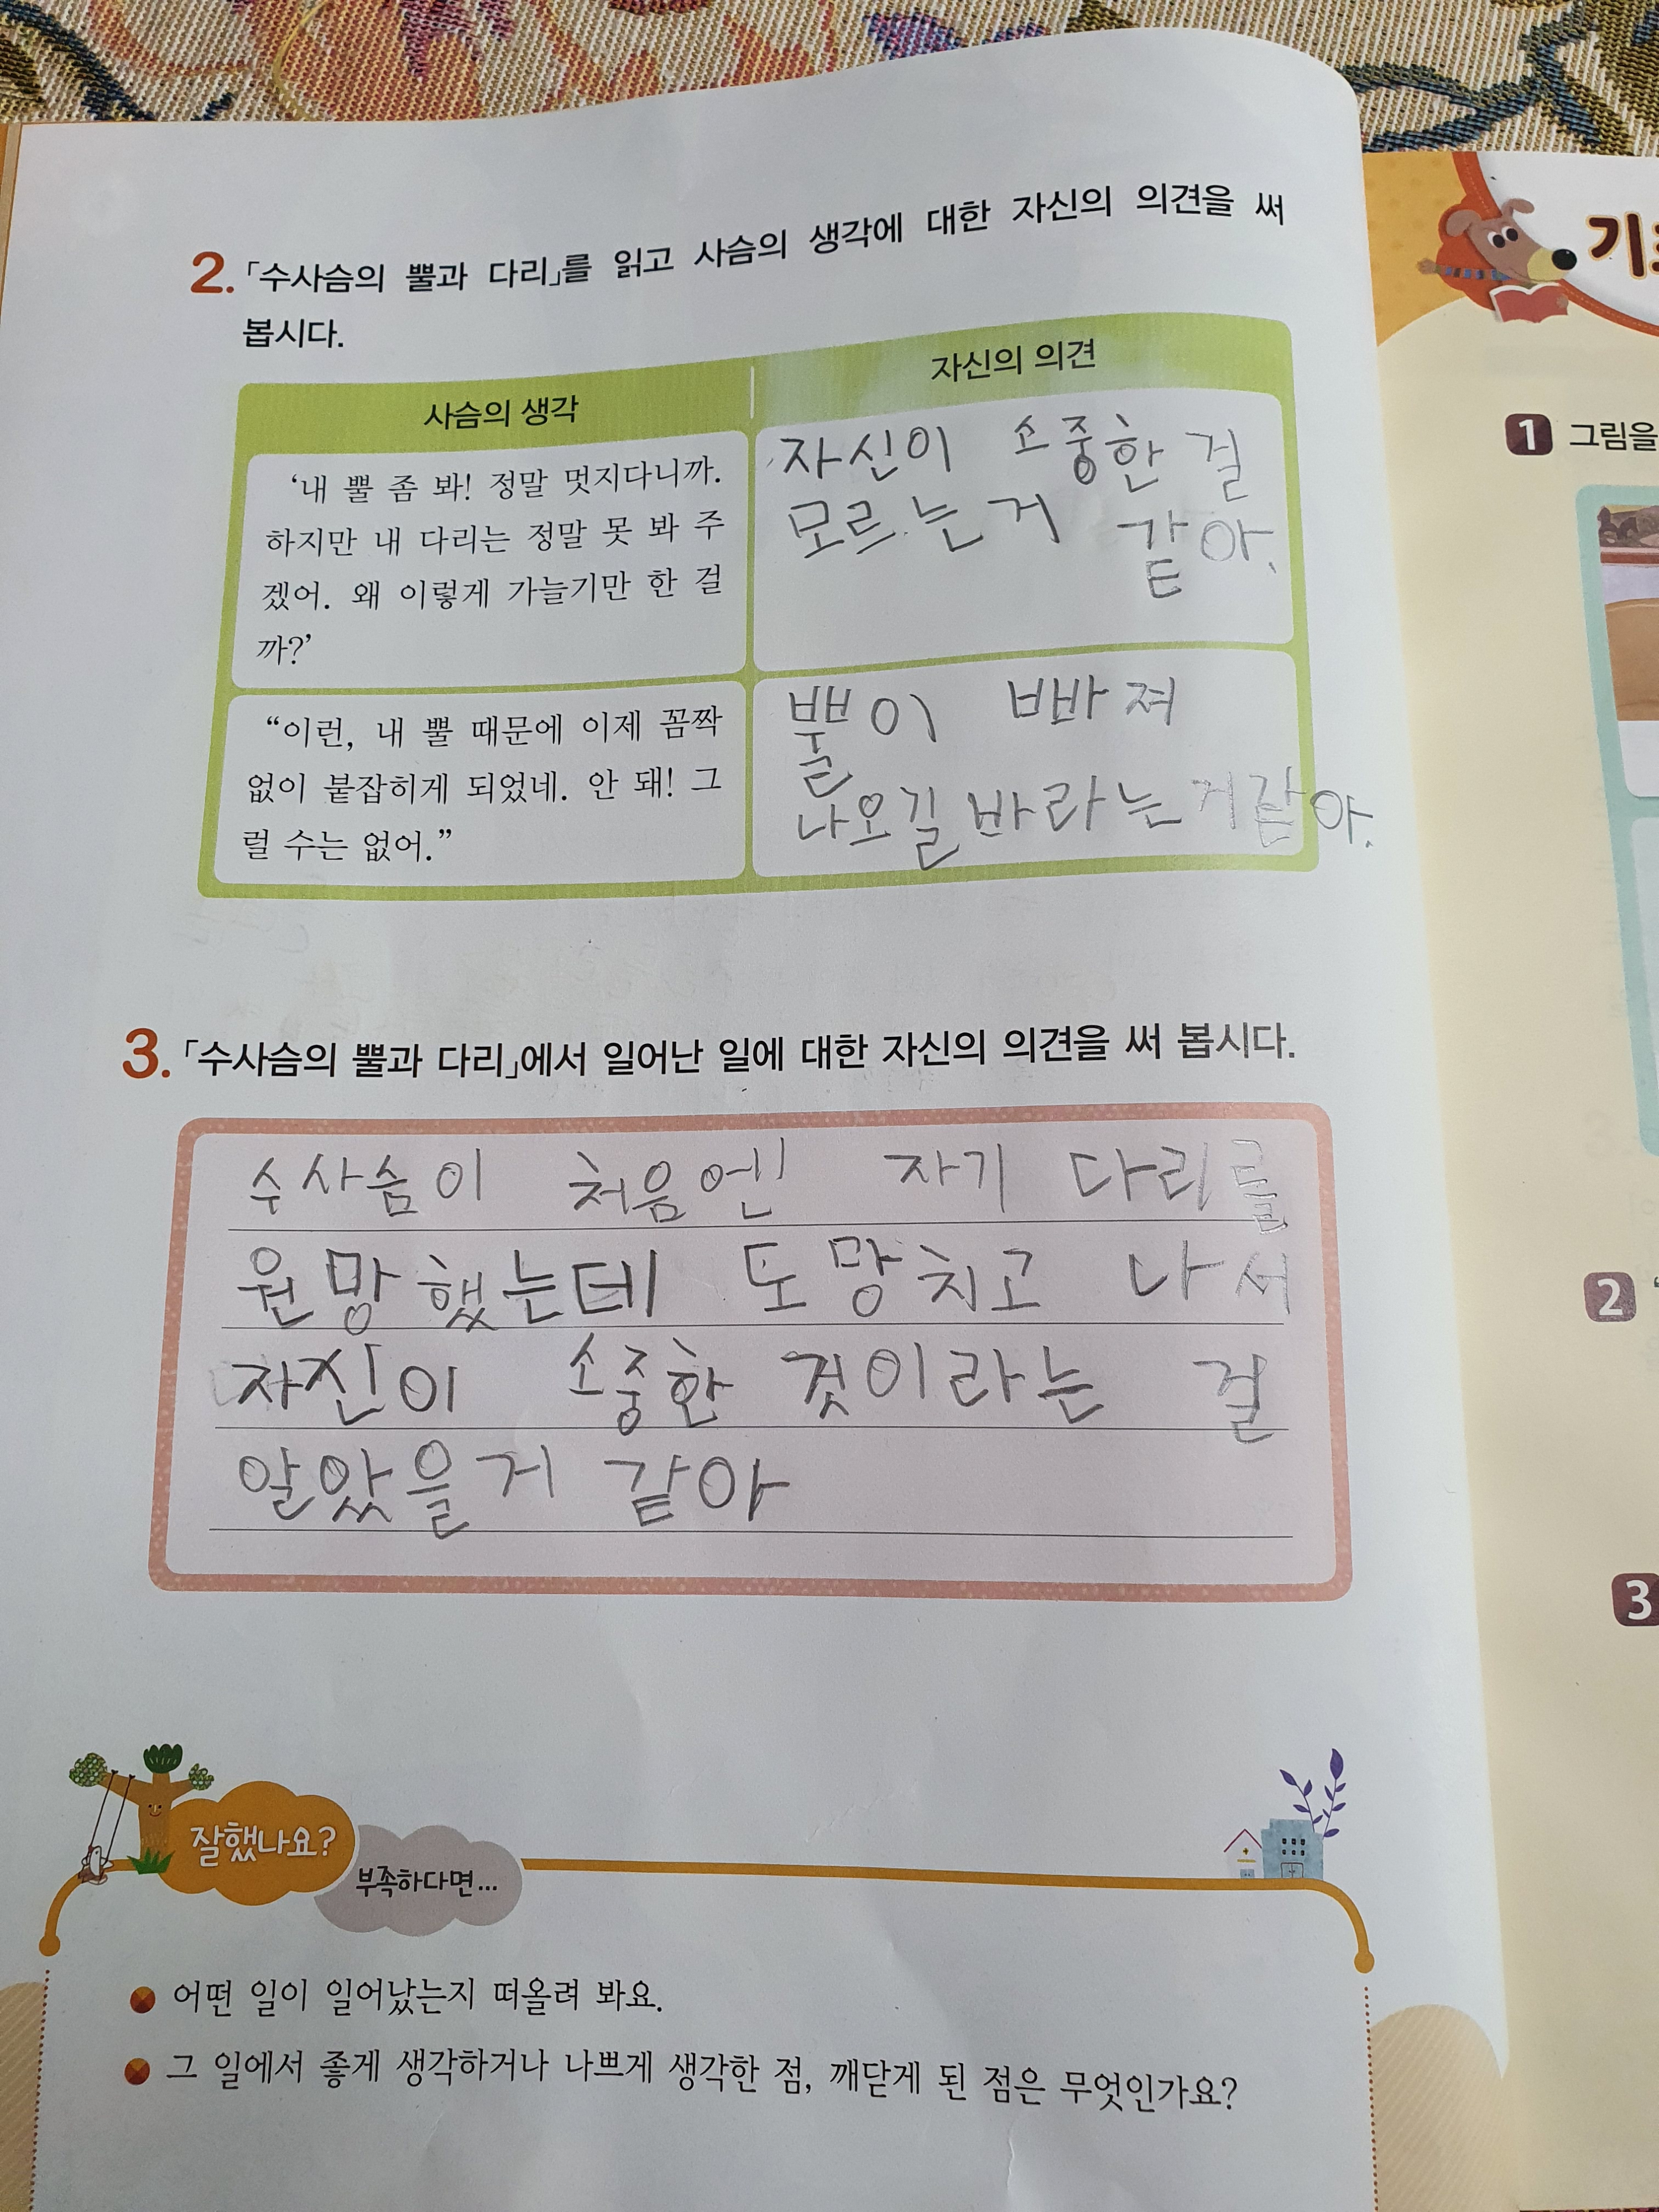 2. 「수사슴의 뿔과 다리」를 읽고 사슴의 생각에 대한 자신의 의견을 써
봅시다.
사슴의 생각
자신의 의견
‘내 뿔 좀 봐! 정말 멋지다니까.
하지만 내 다리는 정말 못 봐 주
겠어. 왜 이렇게 가늘기만 한 걸
까?’
자신이 소중한 걸
모르는거 같아.
“이런, 내 뿔 때문에 이제 꼼짝
없이 붙잡히게 되었네. 안 돼! 그
럴 수는 없어.”
뿔이 빠져
나오길바라는거같아.
3. 「수사슴의 뿔과 다리」에서 일어난 일에 대한 자신의 의견을 써 봅시다.
수사슴이 처음엔 자기 다리를
원망했는데 도망치고 나서
자신이 소중한 것이라는 걸
알았을거 같아
잘했나요?
부족하다면...
어떤 일이 일어났는지 떠올려 봐요.
그 일에서 좋게 생각하거나 나쁘게 생각한 점, 깨닫게 된 점은 무엇인가요?
1 그림을
2
3